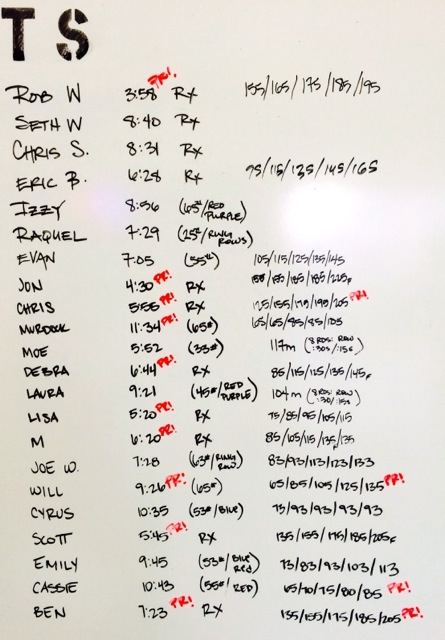 TS
ROB W 3:58 PR! RX 135/165/175/185/195
SETH W 8:40 RX
CHRIS S. 8:31 RX
ERIC B. 6:28 RX 95/115/135/145/165
IZZY 8:56 (65#/RED PURPLE)
RAQUEL 7:29 (25#/RING ROWS)
EVAN 7:05 (55#) 105/115/125/135/145
JON 4:30 PR! RX
CHRIS 5:55 PR! RX PR!
MURDOCK 11:34 PR! (65#)
MOE 5:52 (33#) 117m (8 RDS: ROW :30s/:15s)
DEBRA 6:44 PR! RX 85/115/125/135/145F
LAURA 9:21 (45#/RED PURPLE) 104m (8 RDS: ROW :30/:15s)
LISA 5:20 PR! RX 75/85/95/105/115
M 6:20 PR! RX 85/105/115/135/135
JOE W. 7:28 (63#/RING ROW) 83/93/113/123/133
WILL 9:26 PR! (65#) 65/85/105/125/135 PR!
CYRUS 10:35 (53#/BLUE) 73/93/93/93/93
SCOTT 5:45 PR! RX 135/155/175/185/205F
EMILY 9:45 (53#/BLUE RED) 73/83/93/103/113
CASSIE 10:43 (55#/RED) 65/70/75/80/85 PR!
BEN 7:23 PR! RX 135/155/175/185/205 PR!